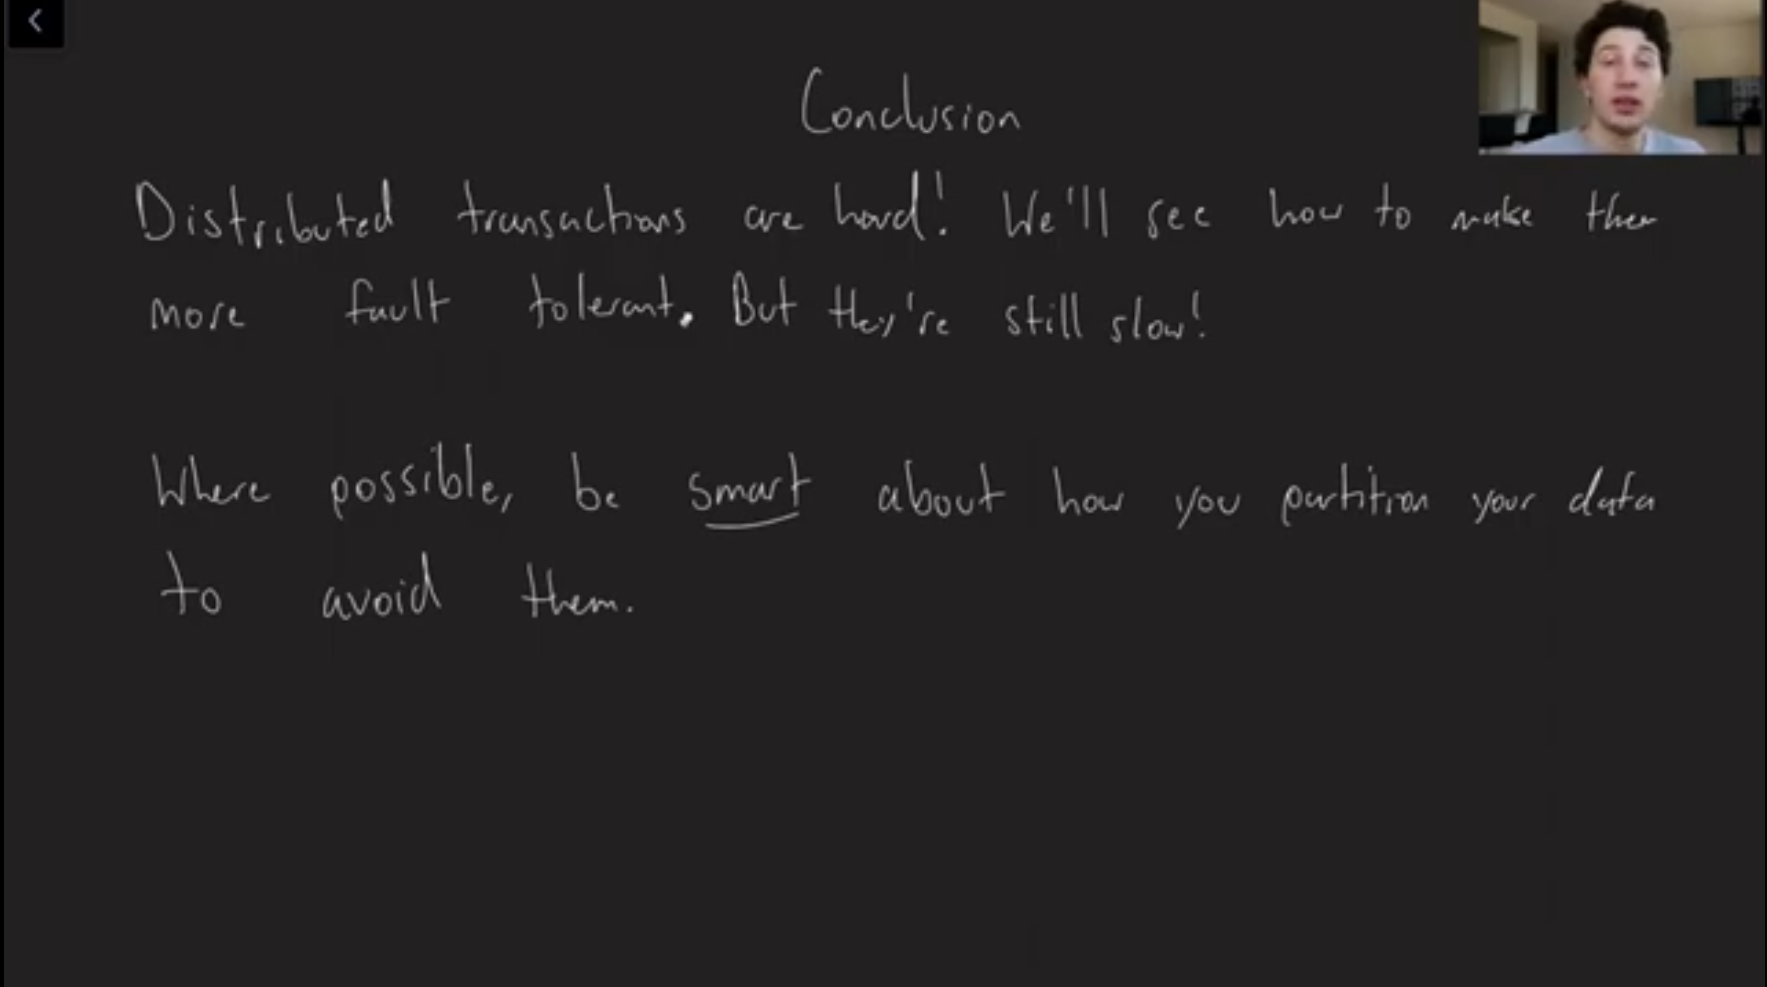 Conclusion
Distributed transactions are hard! We'll see how to make them
more fault tolerant. But they're still slow!
Where possible, be smart about how you partition your data
to avoid them.